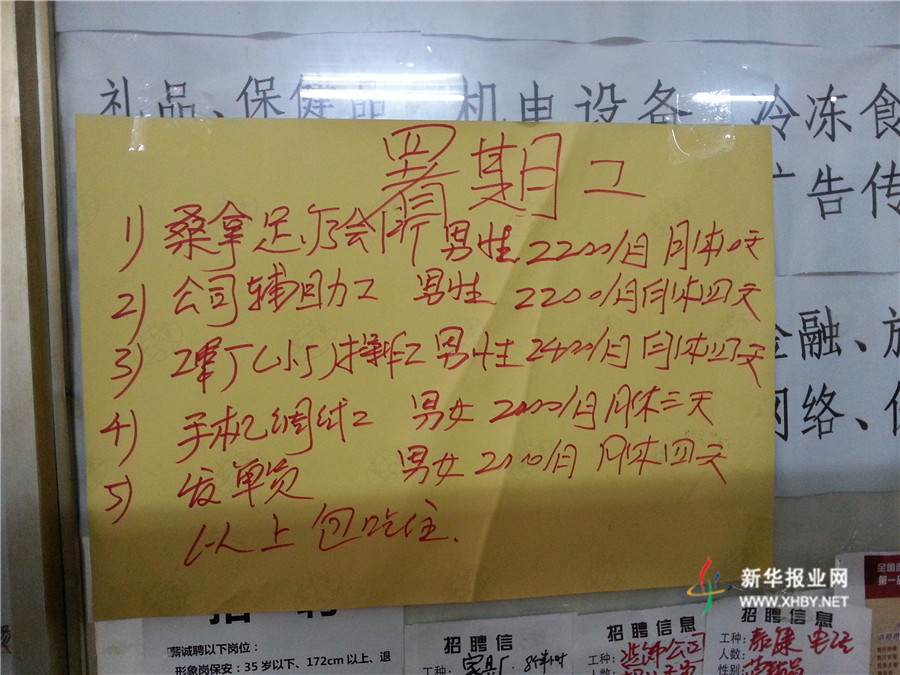 礼品、保健品 机电设备 冷冻食
广告传
金融、旅
网络、
暑期工
1) 桑拿足疗会所 男性 2200/月 月休四天
2) 公司辅助工 男性 2200/月 月休四天
3) 男性 2400/月 月休四天
4) 手机 男女 2000/月 月休三天
5) 发单员 男女 2000/月 月休四天
以上包吃住.
新华报业网
WWW.XHBY.NET
招聘
诚聘以下岗位:
形象岗保安:35岁以下、172cm以上、退
招聘信
工种: 家具厂
招聘信息
工种: 装饰公司
人数:
招聘信息
工种:
人数:
性别:
全国
第一